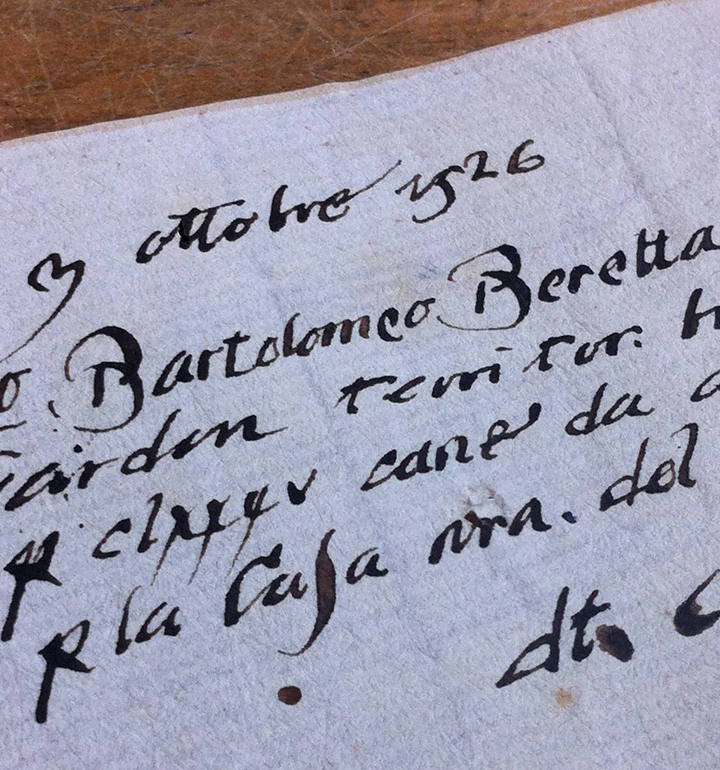 3 ottobre 1526
o Bartolomeo Beretta
Gardon territor. b
p clxxxv cane da a
p la Casa nra. del
dt. C